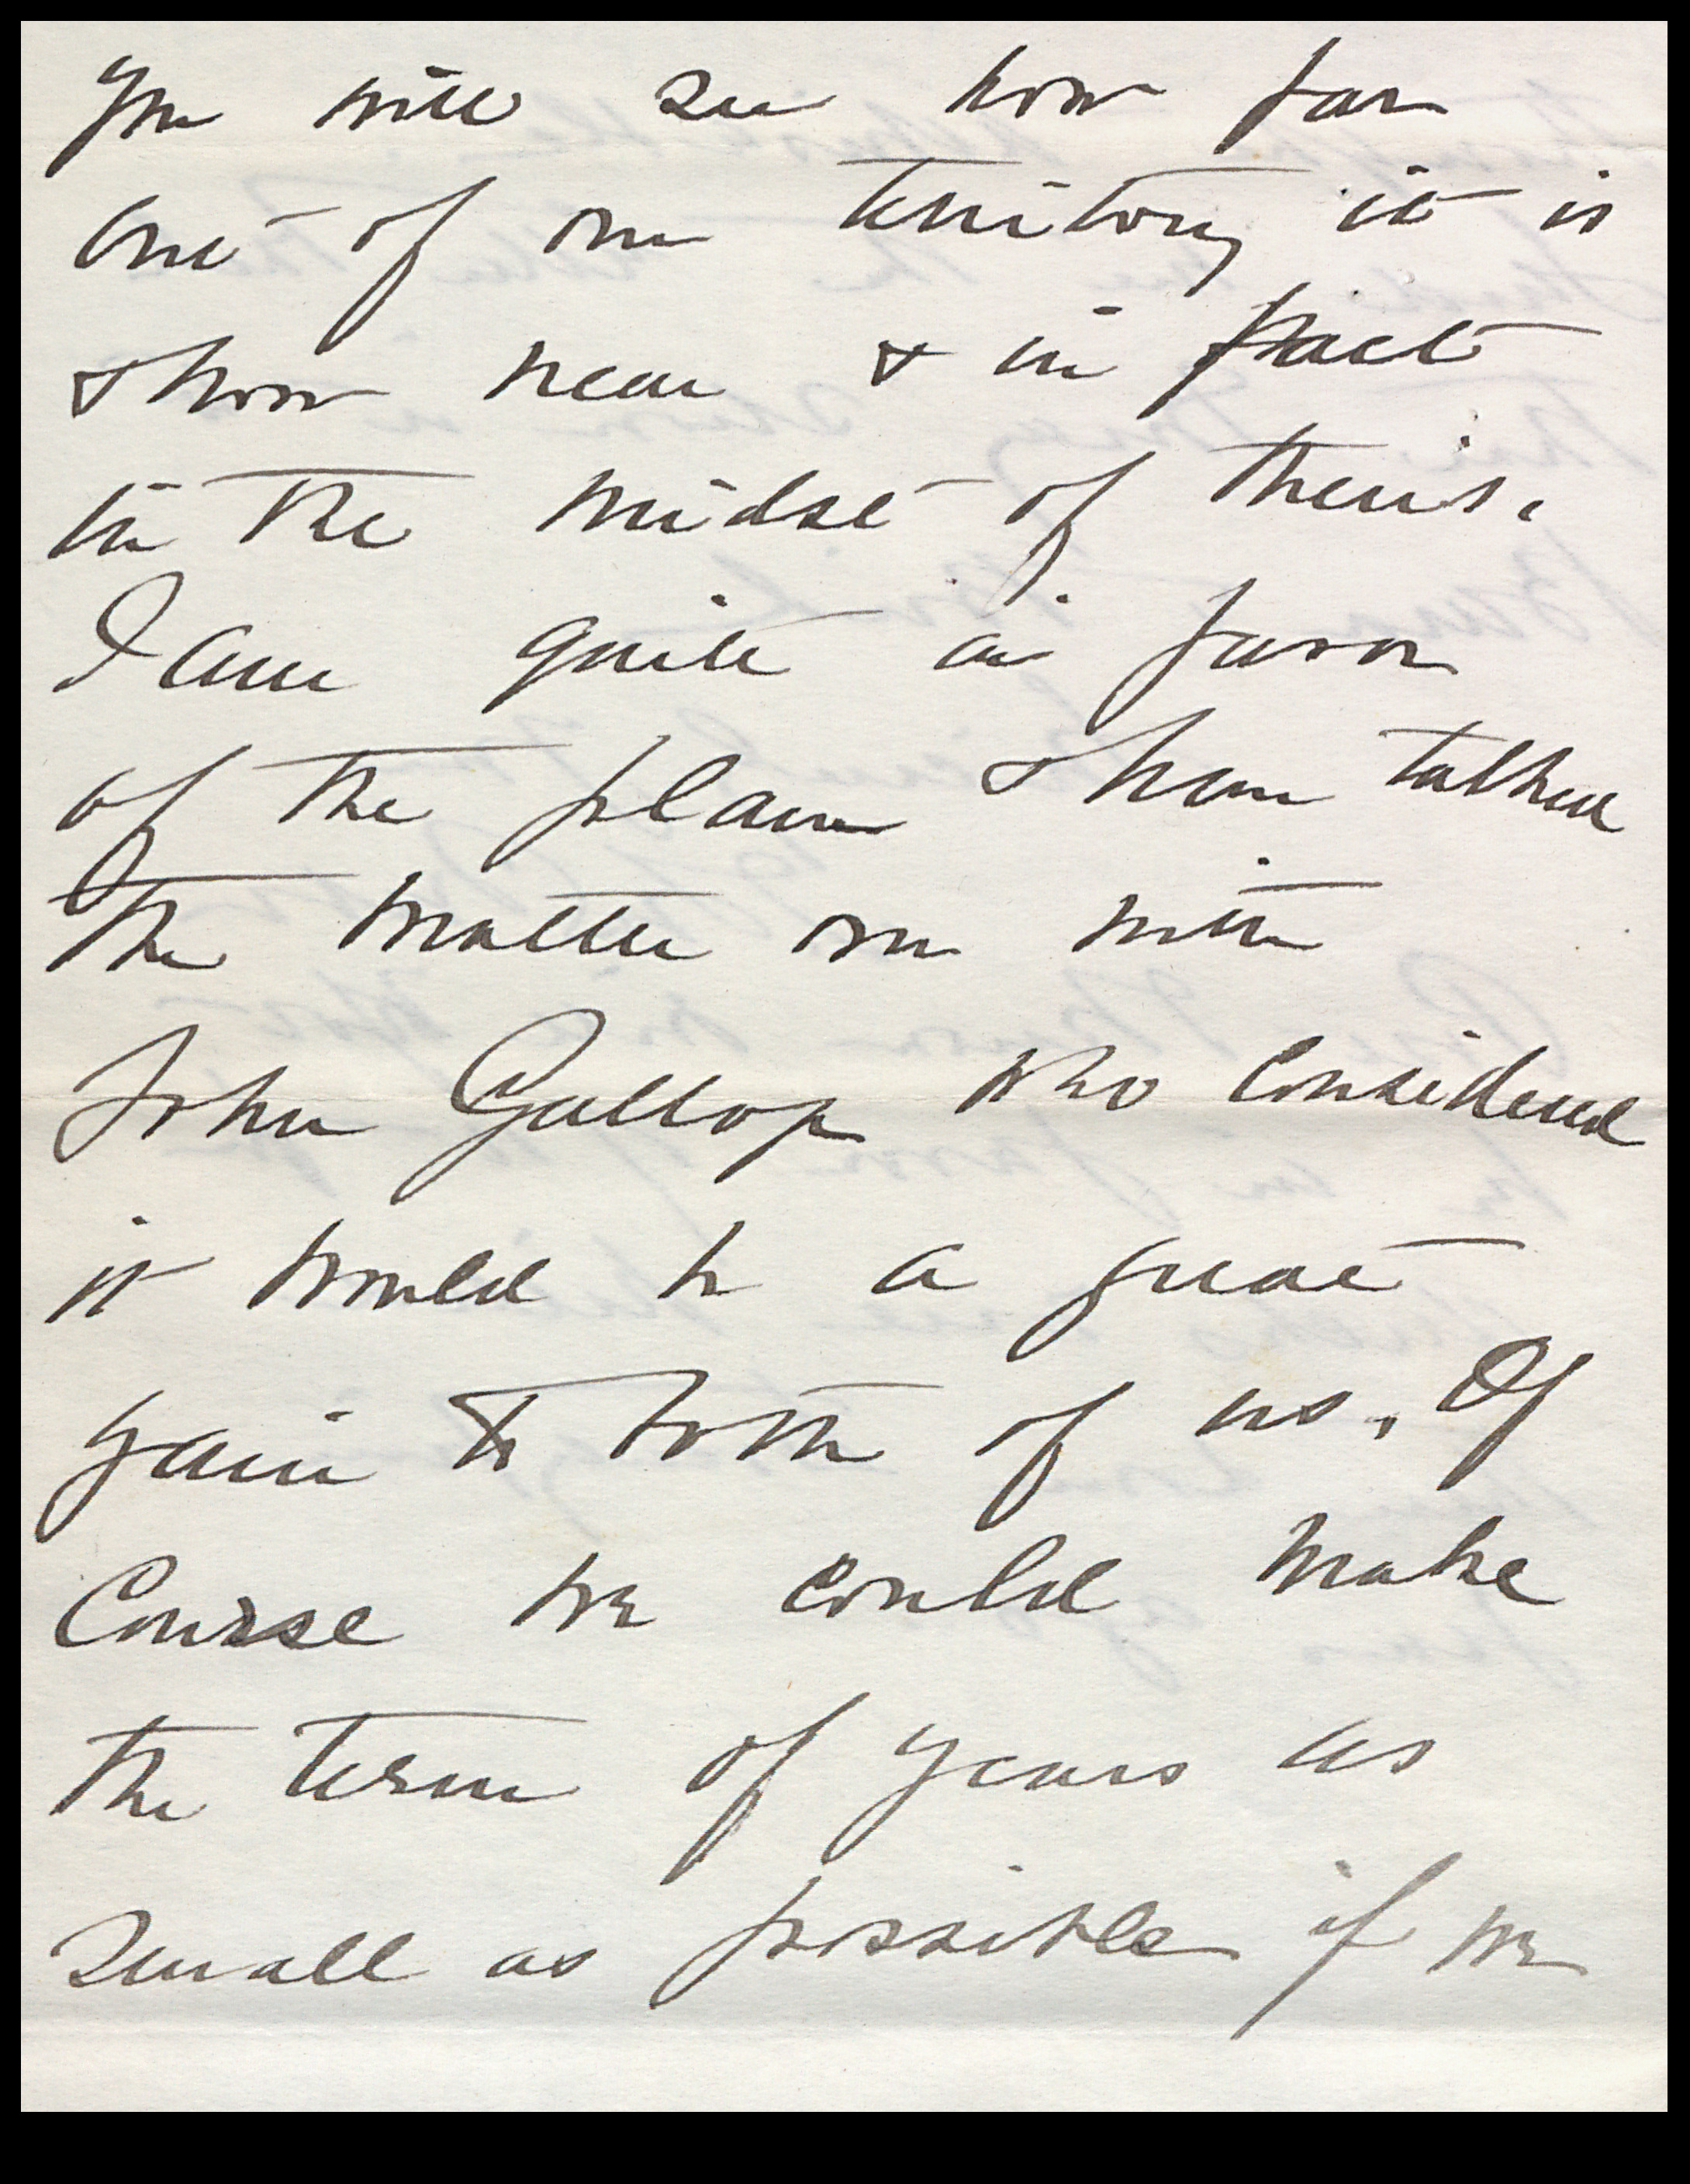 You will see how far
out of our territory it is
& how near & in fact
in the midst of theirs.
I am quite in favor
of the plan & have talked
the matter over with
John Gallop who considered
it would be a great
gain to both of us. Of
Course we could make
the term of years as
small as possible if we